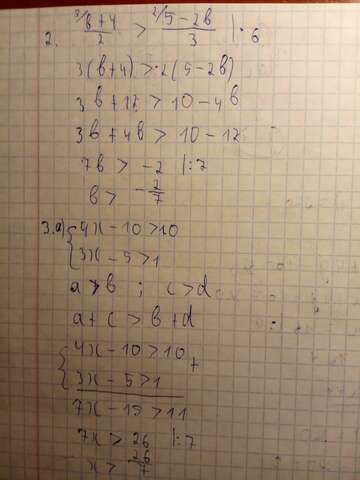 2. ³/(b+4)/2 > ²/(5-2b)/3 |·6
3(b+4)>2(5-2b)
3b+12>10-4b
3b+4b>10-12
7b>-2 |:7
b>-2/7
3.a) {4x-10>10
3x-5>1
a>b ; c>d
a+c>b+d
{4x-10>10 +
3x-5>1
7x-15>11
7x>26 |:7
x>26/7